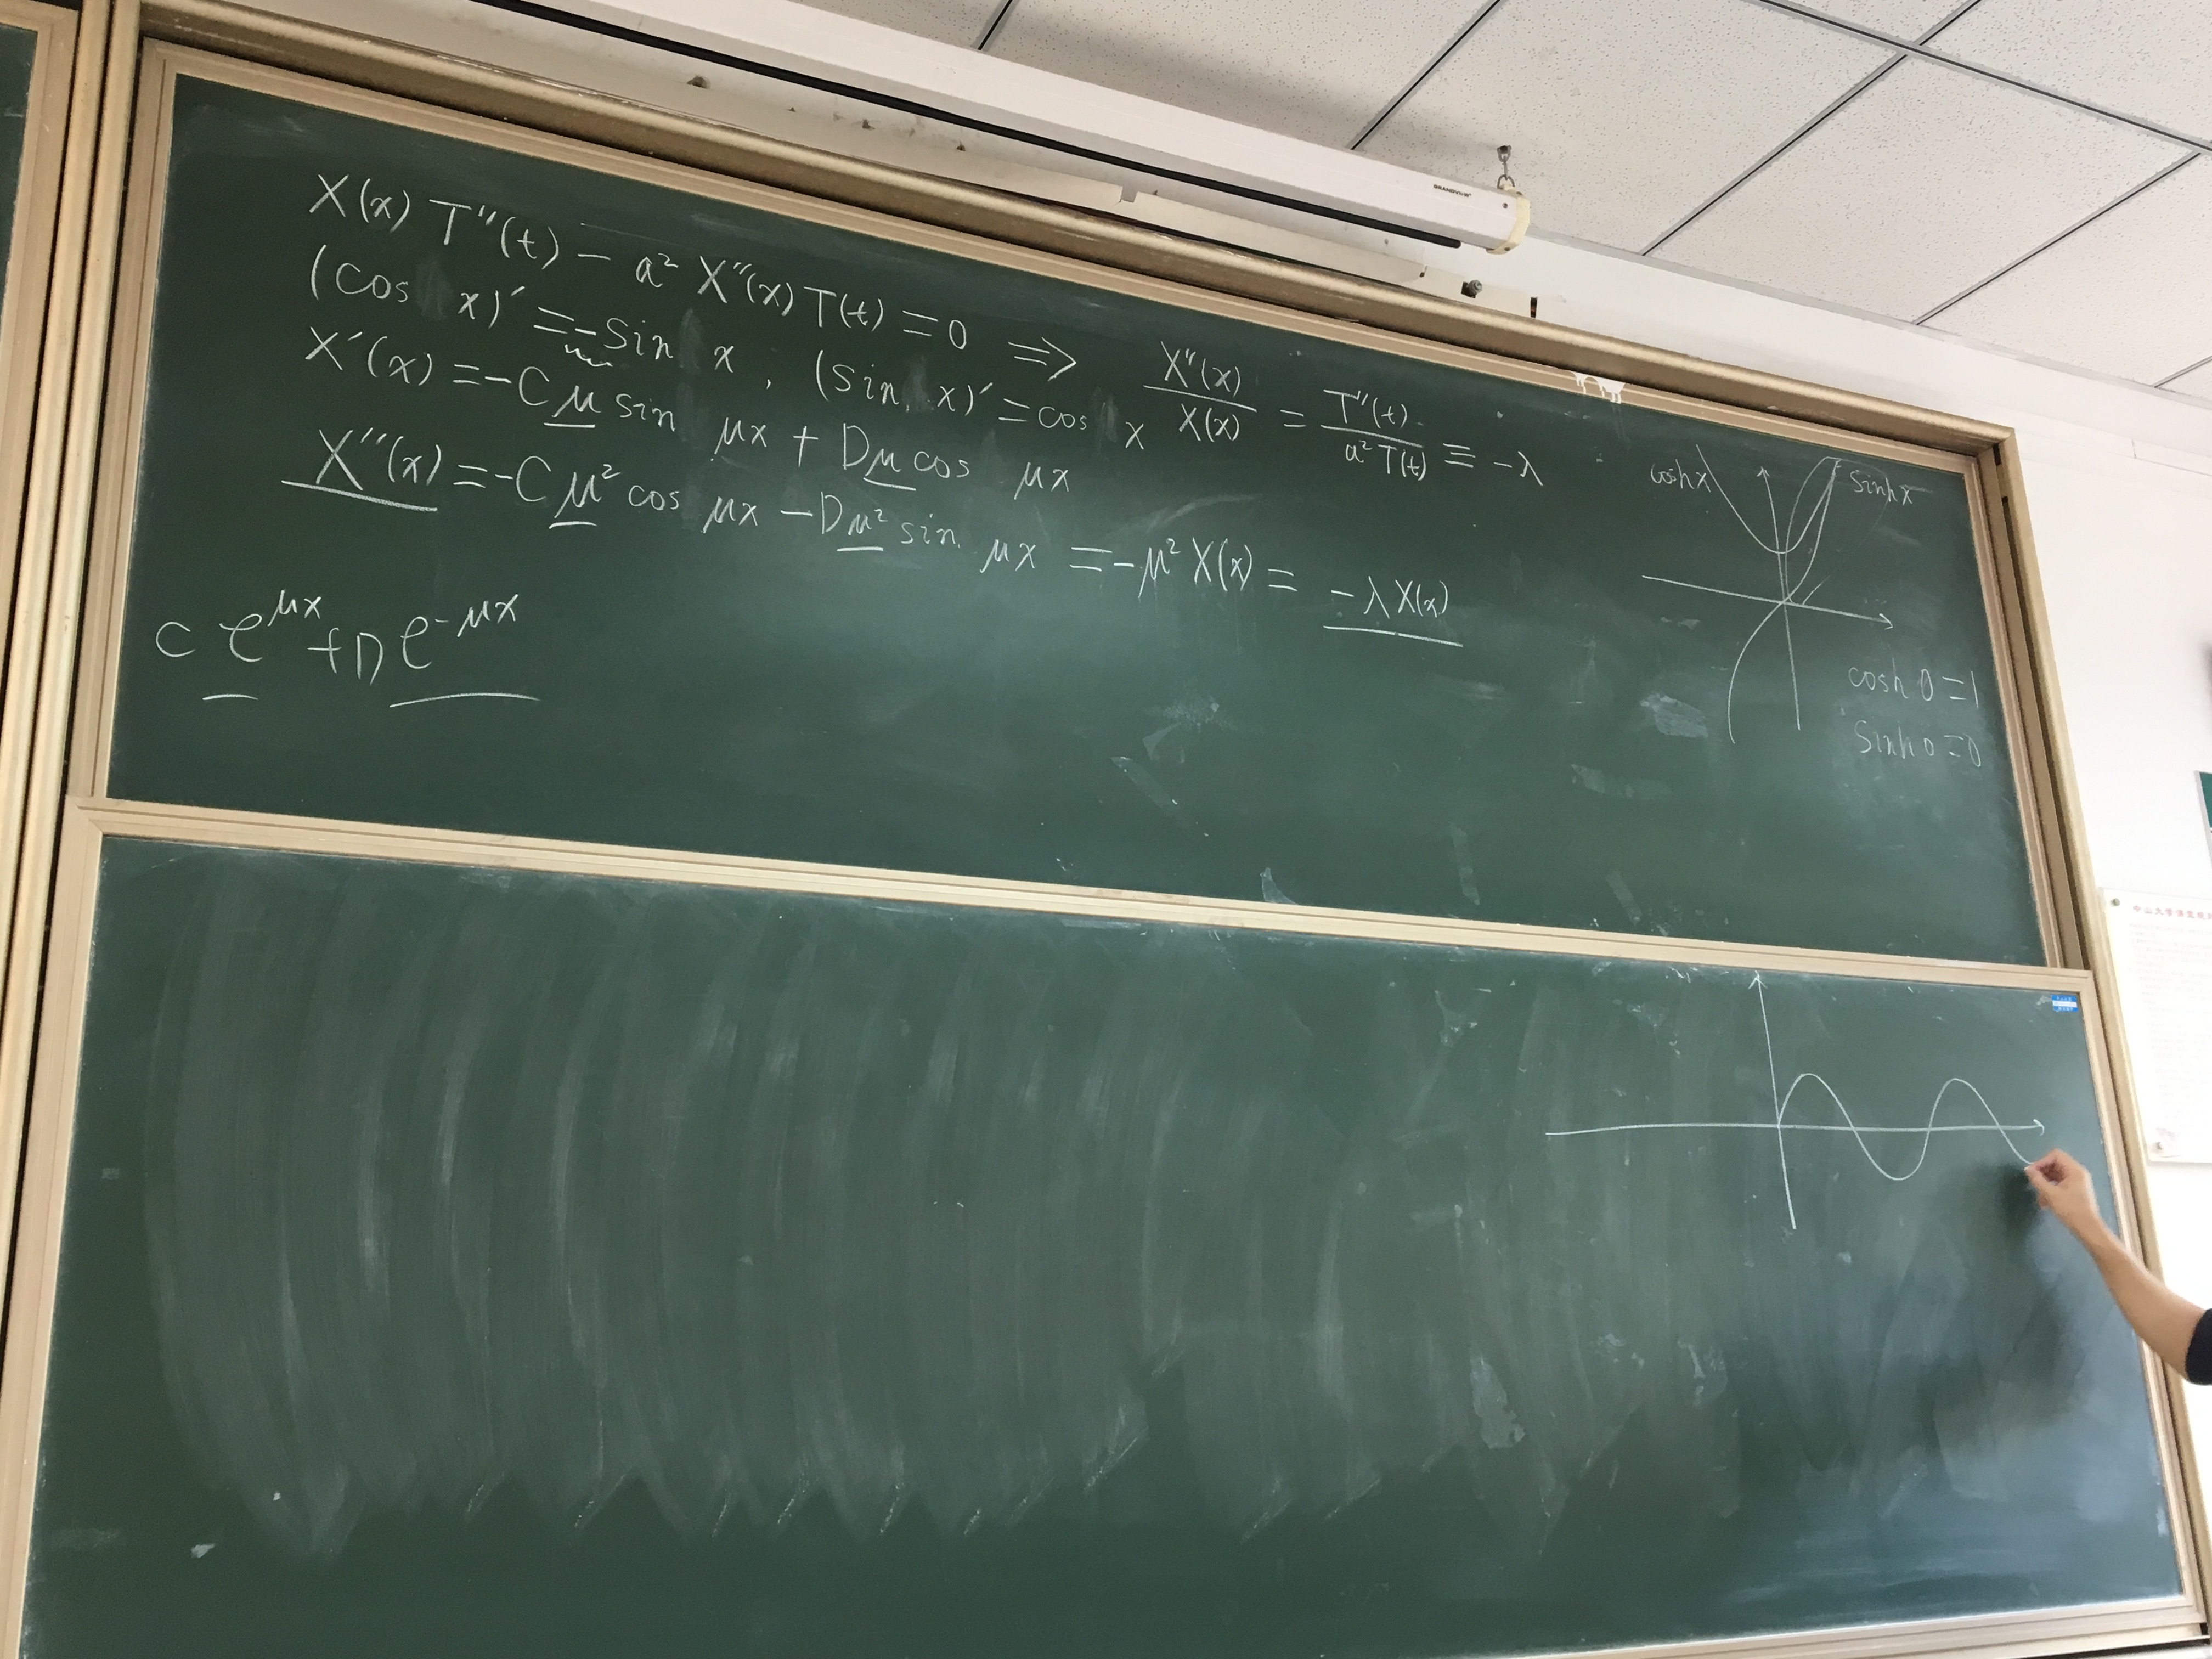 BRANDVIEW
X(x) T''(t) − a² X''(x) T(t) = 0 ⇒ X''(x)/X(x) = T''(t)/a²T(t) ≡ −λ
(cos x)′ = −sin x , (sin x)′ = cos x
X′(x) = −Cμ sin μx + Dμ cos μx
X''(x) = −Cμ² cos μx − Dμ² sin μx = −μ² X(x) = −λX(x)
C e^{μx} + D e^{−μx}
cosh x
sinh x
cosh 0 = 1
sinh 0 = 0